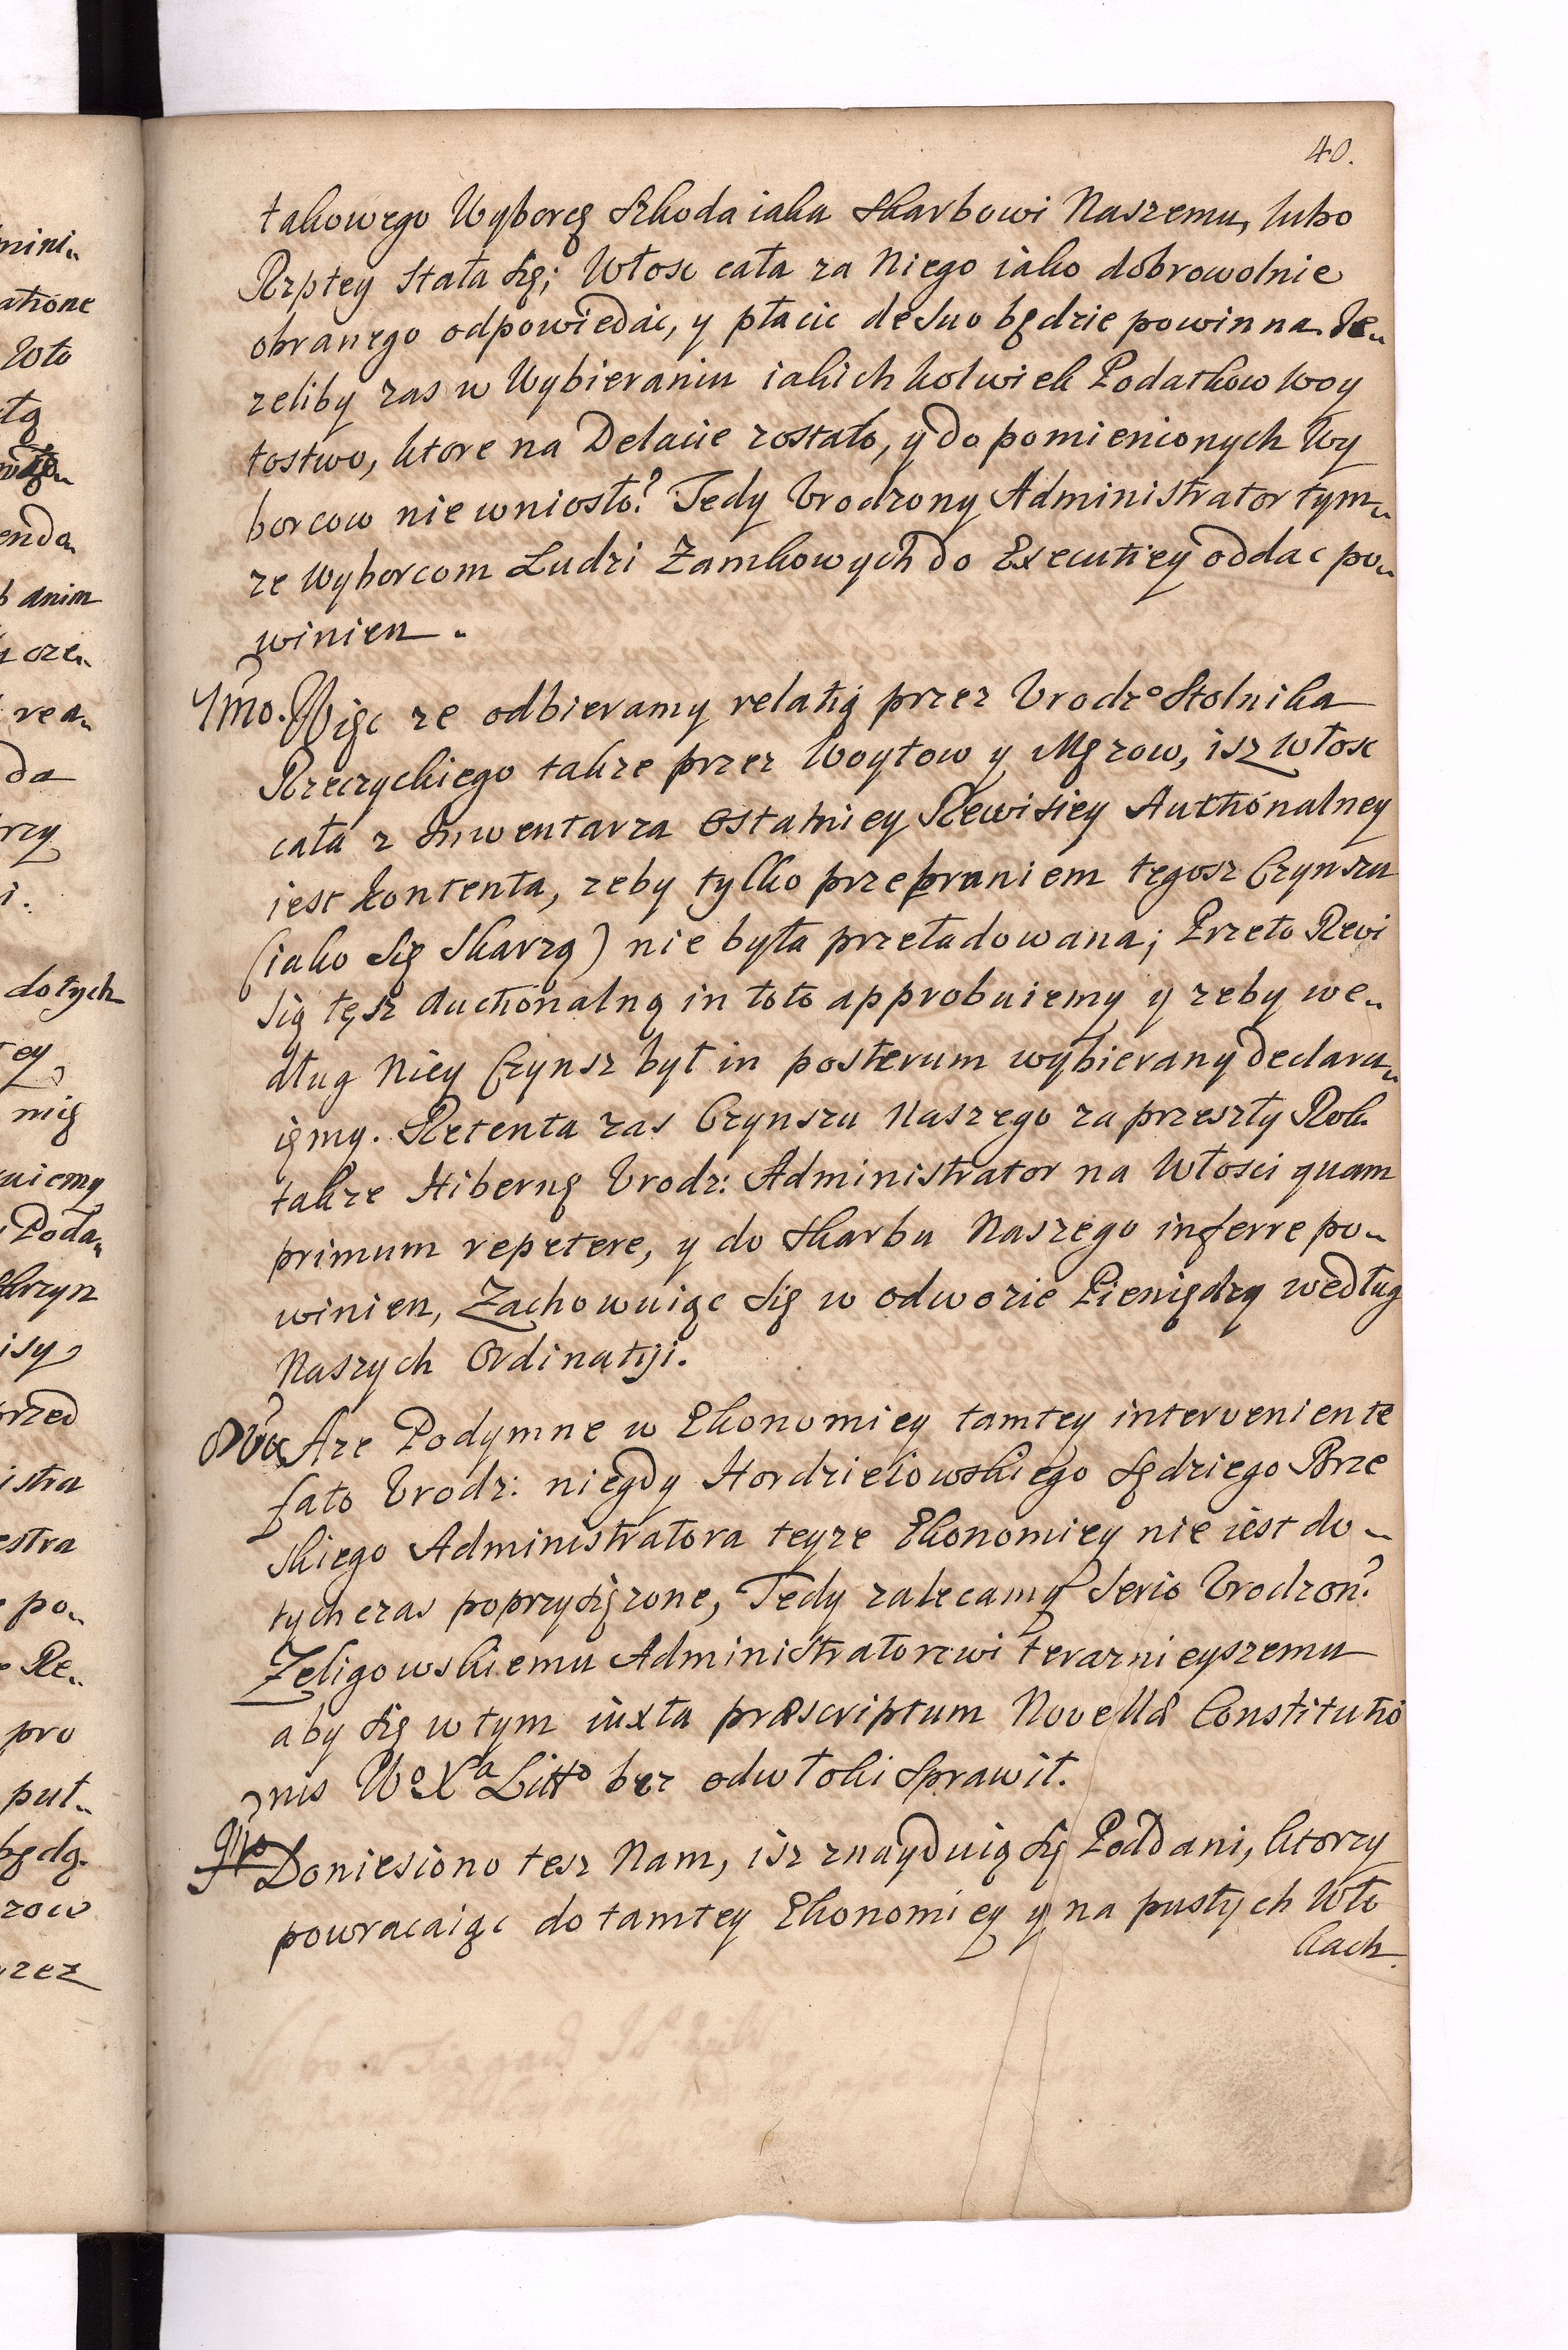 40.
takowego Wyborcę Szkoda iaka Skarbowi Naszemu, lubo
Rzptey Stała się; Włosc cała za Niego iako dobrowolnie
obranego odpowiedac, y płacic de suo będzie powinna. Je„
zeliby zas w Wybieraniu iakich kolwiek Podatkow Woy
tostwo, ktore na Delacie zostało, y do pomienionych Wy
borcow nie wniosło? Tedy Vrodzony Administrator tym„
ze Wyborcom Ludzi Zamkowych do Executiey oddac po„
winien.
7mo. Więc ze odbieramy relatią przez Vrodzo Stolnika
Rzeczyckiego takze przez Woytow y Męzow, isz Włosc
cała z Inwentarza Ostatniey Rewisiey Authonalney
iest kontenta, zeby tylko przebraniem tegosz Czynszu
(iako się Skarzą) nie była przeładowana; Przeto Rewi
sią tęsz Auctionalną in toto approbuiemy y zeby we„
dług Niey Czynsz był in posterum wybierany declaru„
iemy. Retenta zas Czynszu Naszego za przeszły Rok
takze Hibernę Vrodz: Administrator na Włosci quam
primum repetere, y do Skarbu Naszego inferre po„
winien, Zachowuiąc się w odwozie Pieniędzy według
Naszych Ordinatij.
8vo Aze Podymne w Ekonomiey tamtey interveniente
fato Vrodz: niegdy Hordzieiowskiego Sędziego Brze
skiego Administratora teyze Ekonomiey nie iest do„
tychczas poprzysięzone, Tedy zalecamy Serio Vrodzon?
Zeligowskiemu Administratorowi teraznieyszemu
aby się w tym iuxta præscriptum Novellæ Constitutio
nis Wo Xa Litto bez odwłoki Sprawił.
9no Doniesiono tesz Nam, isz znayduią się Poddani, ktorzy
powracaiąc do tamtey Ekonomiey y na pustych Wło
kach.